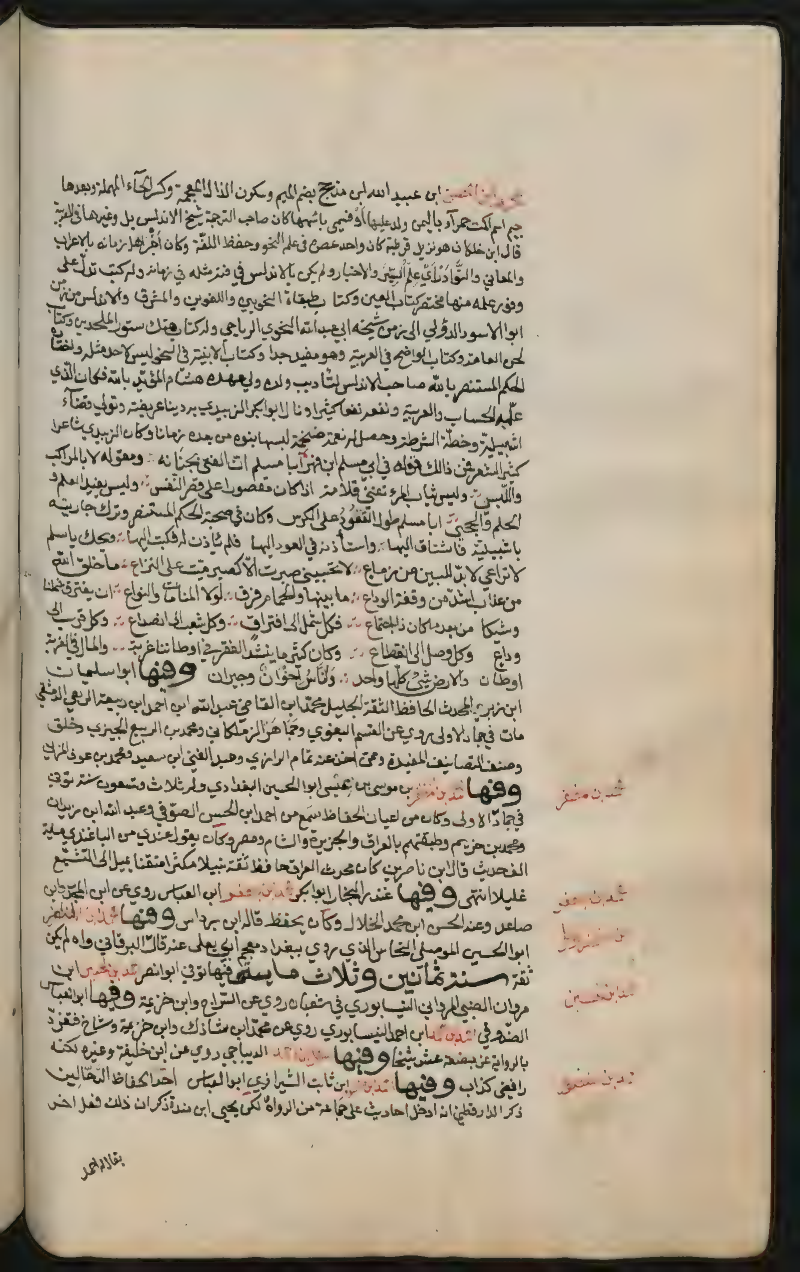 محمد ابن الحسن ابن عبيد الله ابن مذحج بضم الميم وسكون الذال المعجمة وكسر الحاء المهملة وبعدها
جيم اسم اكت حمرآ وباليمن ولد عليها أد فسمي باسمها كان صاحب الترجمة شيخ الاندلس بل وغيرها في العربية
قال ابن خلكان هو نزيل قرطبة كان واحد عصره في علم النحو وحفظ اللغة وكان أخبر أهل زمانه بالاعراب
والمعاني والنوادر الي علم السير والاخبار ولم يكن بالاندلس في فنه مثله في زمانه وله كتب تدل على
وفور علمه منها مختصر كتاب العين وكتاب طبقات النحويين واللغويين والمشرق والاندلس من زمن
ابو الاسود الدؤلي الى زمن شيخه ابي عبد الله النحوي الرباحي وله كتاب هتك ستور الملحدين وكتاب
لحن العامة وكتاب الواضح في العربية وهو مفيد جدا وكتاب الابنية في النحو ليس لاحد مثله واختاره
الحكم المستنصر بالله صاحب الاندلس لتأديب ولده ولي عهده هشام المؤيد بالله فكان الذي
علمه الحساب والعربية ونفعه نفعا كثيرا ونال ابو بكر الزبيدي به دنيا عريضة وتولى قضآء
اشبيلية وخطة الشرطة وحصل له نعمة ضخمة لبسها بنوه من بعده زمانا وكان الزبيدي شاعرا
كثير الشعر فمن ذالك قوله في ابي مسلم ابن فهر أبا مسلم ان الفتى بجنانه ∴ ومقوله لا بالمراكب
واللبس ∴ وليس ثياب المرء تغني قلامة اذا كان مقصورا على قصر النفس ∴ وليس يفيد العلم و
الحلم والحجى ∴ ابا مسلم طول القعود على الكرس وكان في صحبة الحكم المستنصر وترك جاريته
باشبيلية فاشتاق اليها واستأذنه في العود اليها فلم ياذن له فكتب اليها ∴ ويحك يا سلم
لا تراعي لا بد للبين من زماع ∴ لا تحسبيني صبرت الا كصبر ميت على النزاع ∴ ما خلق الله
من عذاب اشد من وقفة الوداع ∴ ما بينها والحمام فرق ∴ لولا المناحات والنواع ∴ ان يفترق شملنا
وشيكا من بعد ما كان ذا اجتماع ∴ فكل شمل الى افتراق ∴ وكل شعب الى انصداع ∴ وكل قرب الى
وداع وكل وصل الى انقطاع ∴ وكان كثيرا ما ينشد الفقر في اوطاننا غربة ∴ والمال في الغربة
اوطان والارض شيء كلها واحد ∴ والناس اخوان وجيران وفيها ابو اسليمان
ابن زبر المحدث الحافظ الثقة الجليل محمد ابن القاضي عبد الله ابن احمد ابن ربيعة الربعي الدمشقي
مات في جماد الاولى روى عن القسم البغوي وجماهر الزملكاني ومحمد بن الربيع الجيزي وخلق
وصنف التصانيف المفيدة وعن اخذ عنه تمام الرازي وعبد الغني ابن سعيد ومحمد بن عوف المزني
وفيها محمد بن مظفر بن موسى بن عيسى ابو الحسين البغدادي وله ثلاث وتسعون سنة توفي
في جماد الاولى وكان من اعيان الحفاظ سمع من احمد ابن الحسن الصوفي وعبد الله ابن زيدان
ومحمد بن خزيم وطبقتهم بالعراق والجزيرة والشام ومصر وكان يقول عندي من الباغندي مئة
الف حديث قال ابن ناصر الدين كان محدث العراق حافظا ثقة نبيلا مكثرا متقنا يميل الى التشيع
غليلا انتهى وفيها غندر النجار ابو بكر محمد بن جعفر ابن العباس روى عن ابن المجدر وابن
صاعد وعنه الحسن ابن محمد الخلال وكان يحفظ قاله ابن برداس وفيها محمد بن المظفر
ابو الحسين الموصلي النخاس الذي روى ببغداد معجم ابي يعلى عنه قال البرقاني واه لم يكن
ثقة سنة ثمانين وثلاث مائة فيها توفي ابو انصر محمد بن الحسين ابن
مروان الضبي المرواني النيسابوري في شعبان روى عن السراج وابن خزيمة وفيها ابو العباس
محمد ابن احمد النيسابوري روى عن محمد ابن شاذك وابن خزيمة وشاخ فتفرد
بالرواية عن بضعة عشر شيخا وفيها الديباجي روى عن ابن خليفة وغيره لكنه
رافضي كذاب وفيها ابن ثابت الشيرازي ابو العباس احد الحفاظ الرحالين
ذكر الدارقطني انه ادخل احاديث على جماعة من الرواة لكن يحيى ابن مندة ذكر ان ذلك فعل اخر
محمد بن مظفر
محمد بن جعفر
محمد بن حسين
يقال له احمد